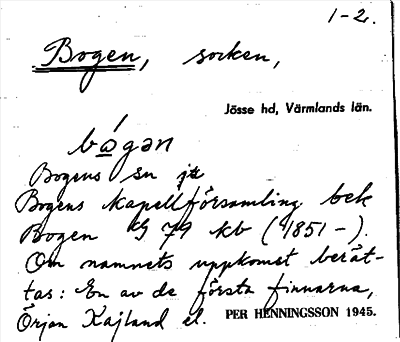 1-2.
Bogen, socken,
Jösse hd, Värmlands län.
bógən
Bogens sn
Bogens kapellförsamling bek
Bogen G 79 kb (1851-).
Om namnets uppkomst berät-
tas: En av de första finnarna,
Örjan Kajland el. PER HENNINGSSON 1945.